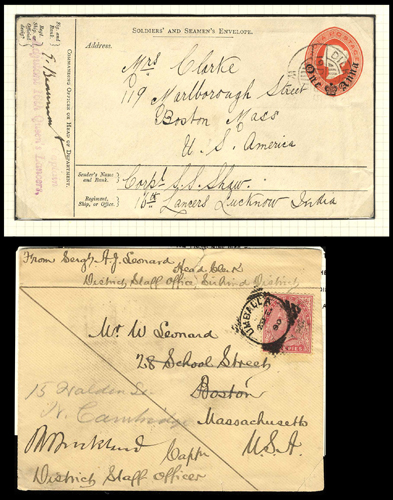 SOLDIERS' AND SEAMEN'S ENVELOPE.
Address.
Mrs Clarke
179 Marlborough Street
Boston Mass
U. S. America
One Anna
Sender's Name and Rank.
Corpl. G. S. Shaw.
Regiment, Ship, or Office.
16th Lancers Lucknow India
COMMANDING OFFICER OR HEAD OF DEPARTMENT.
From Sergt A. J. Leonard
Head Clerk
District Staff Office Sirhind District
UMBALLA
Mr W Leonard
28 School Street
Boston
Massachusetts
U.S.A
15 Walden St
N. Cambridge
Capt
District Staff Officer